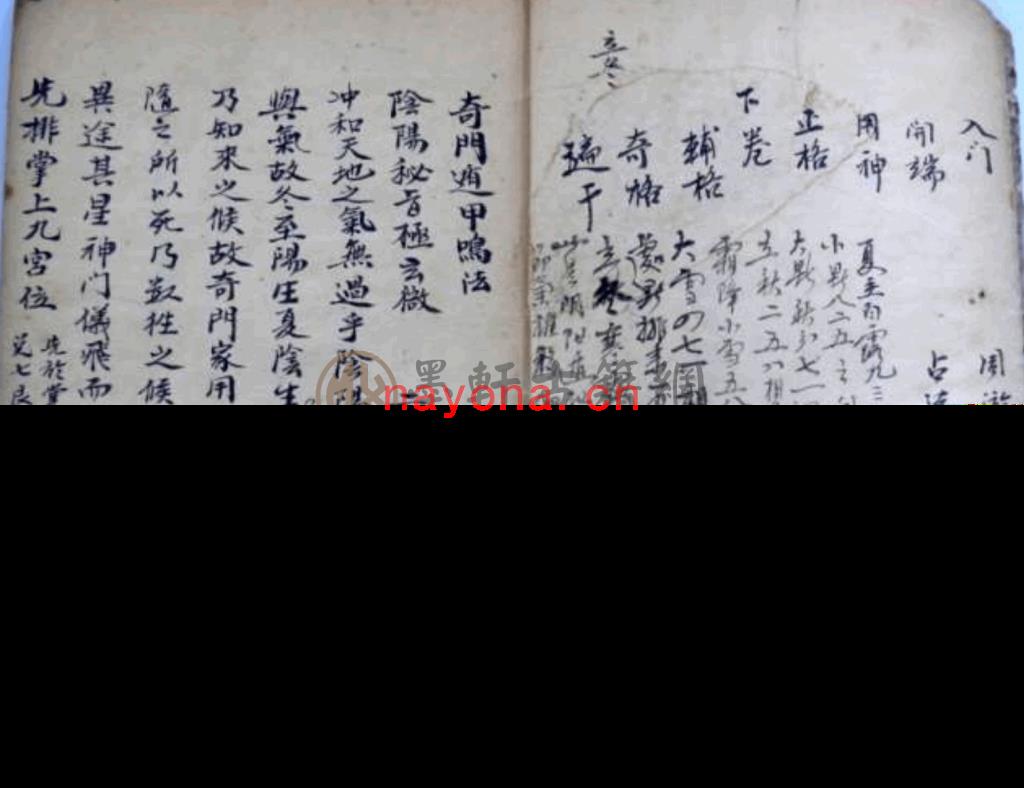 入门
開端
用神
正格
下卷
輔格
奇格
遁干
立冬
周游
占法
夏至白露九三
小暑八二五之
大暑秋分七一四
立秋二五八相
霜降小雪五八
大雪四七一相
處暑排來
立冬
奇門遁甲鳴法
陰陽秘旨極玄微
冲和天地之氣無過乎陰陽
與氣故冬至陽生夏陰生
乃知來之候故奇門家用
隨之所以死乃
牲之候
異途其星神门儀飛而
先排掌上九宮位
先於掌
艮七
墨軒古籍網
nayona.cn